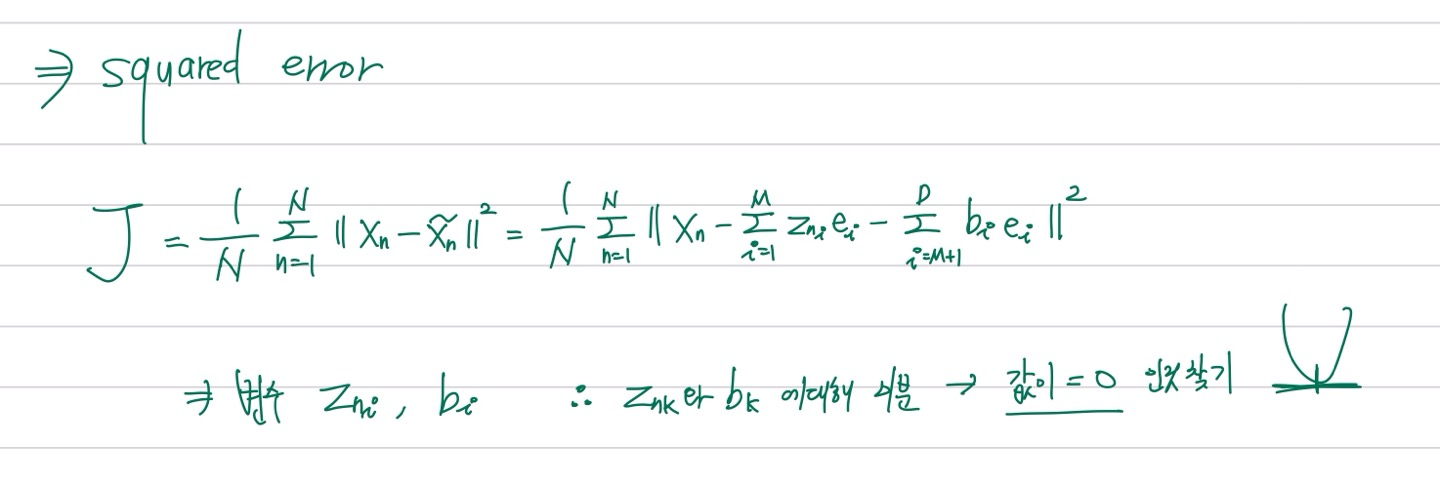 ⇒ squared error
J = 1/N Σ_{n=1}^{N} ‖ x_n − x̃_n ‖² = 1/N Σ_{n=1}^{N} ‖ x_n − Σ_{i=1}^{M} z_{ni} e_i − Σ_{i=M+1}^{D} b_i e_i ‖²
⇒ 변수 z_{ni}, b_i ∴ z_{nk}와 b_k 에대해 미분 → 값이 = 0 인것 찾기